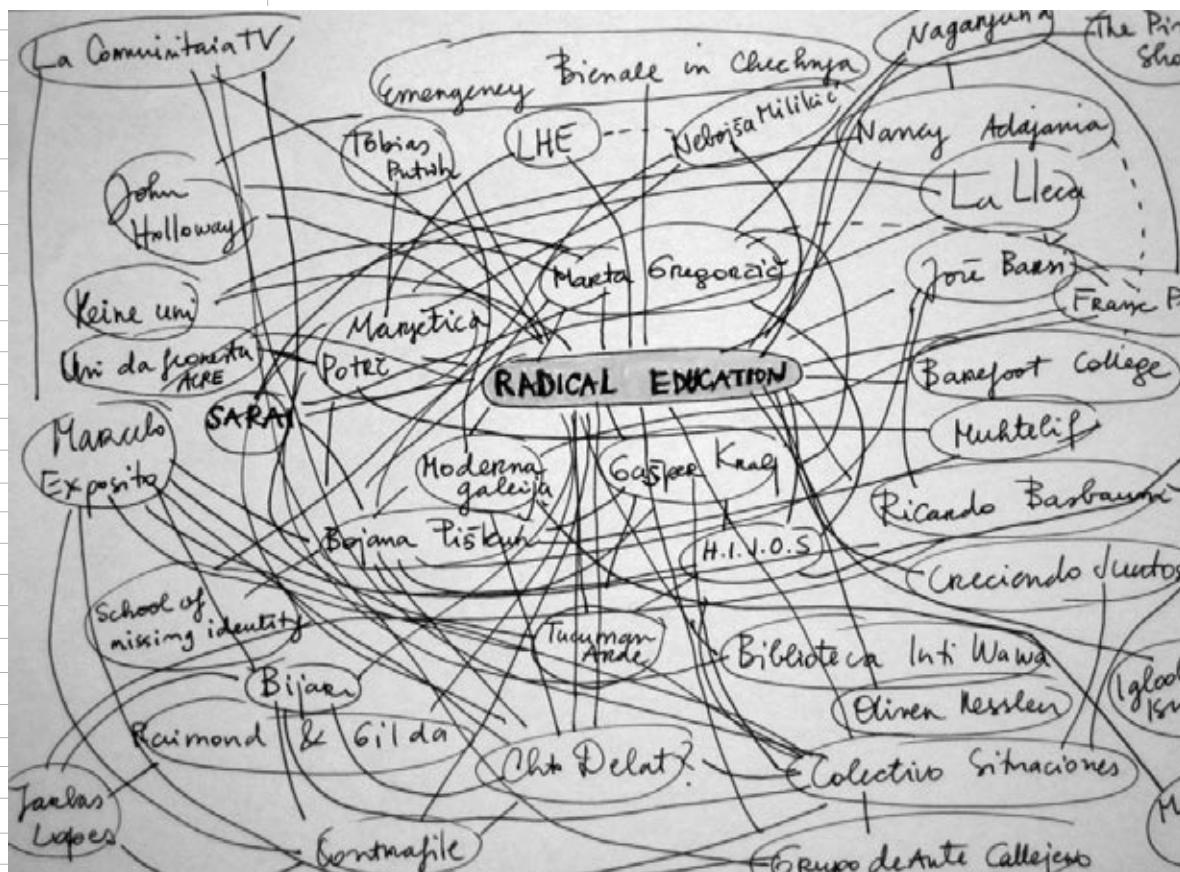 La Comunitaria TV
Emergency Bienale in Chechnya
Naganjuna
The Pir
Sho
Tobias
Putrih
LHE
Nebojša Milikić
Nancy Adajania
John
Holloway
La Lleca
Marta Gregorčič
Jorē Barsi
Franc P
Keine uni
Marjetica
Potrč
Uni da floresta
ACRE
RADICAL EDUCATION
Barefoot College
SARAI
Muhtelif
Marcelo
Exposito
Moderna
galerija
Gašper Kralj
Ricardo Basbaum
Bojana Piškur
H.I.J.O.S
Creciendo Juntos
School of
missing identity
Tucuman
Arde
Biblioteca Inti Wawa
Bijari
Oliver Ressler
Igloo
Raimond & Gilda
Chto Delat?
Colectivo Situaciones
Jarbas
Lopes
Contrafile
Grupo de Arte Callejero
M